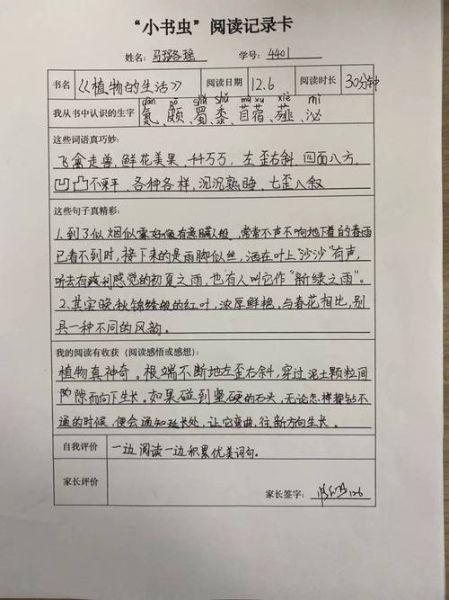 “小书虫”阅读记录卡
姓名： 马 瑶 学号： 4401
书名 《植物的生活》 阅读日期 12.6 阅读时长 30分钟
dàn pō shǔ shǔ mù xu xiè mì
我从书中认识的生字 氮、颇、蜀、黍、苜蓿、薤、泌
这些词语真巧妙：
飞禽走兽，鲜花美果，千千万万，左歪右斜，四面八方，
凹凸不平，各种各样，沉沉熟睡，七歪八叙
这些句子真精彩：
1.到了似烟似雾好像有意瞒人般，常常不声不响地下着的春雨
已看不到时，接下来的是雨脚似丝，洒在叶上“沙沙”有声，
听去有锐利感觉的初夏之雨，也有人叫它作“新绿之雨”。
2.其实晚秋锦缎般的红叶，浓厚鲜艳，与春花相比，别
具一种不同的风韵。
我的阅读有收获（阅读感悟或感想）：
植物真神奇。根端不断地左歪右斜，穿过泥土颗粒间
隙而向下生长。如果碰到坚硬的石头，无论怎样都钻不
通的时候，便会通知延长处，让它弯曲，往新方向生长。
自我评价 一边阅读一边积累优美词句。
家长评价
家长签字： 12.6